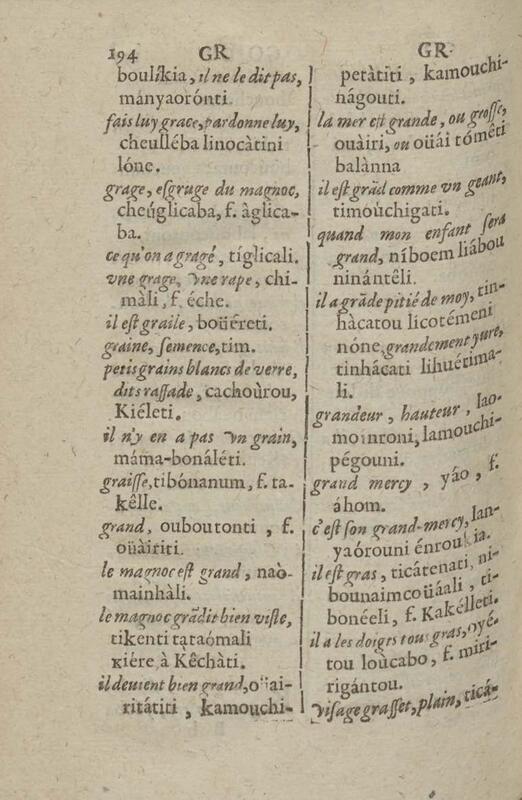 194 GR
boulíkia, il ne le dit pas,
mányaorónti.
fais luy grace, pardonne luy,
cheulléba linocàtini
lóne.
grage, esgruge du magnoc,
cheúglicaba, f. àglica-
ba.
ce qu'on a gragé, tíglicali.
vne grage, vne rape, chi-
màli, f. éche.
il est graile, boüéreti.
graine, semence, tim.
petis grains blancs de verre,
dits rassade, cachoùrou,
Kiéleti.
il n'y en a pas vn grain,
máma-bonáléti.
graisse, tibónanum, f. ta-
kêlle.
grand, ouboutonti, f.
oüàiriti.
le magnoc est grand, naò-
mainhàli.
le magnoc grādit bien viste,
tikenti tataómali
κiére à Kêchàti.
il deuient bien grand, oüai-
ritátiti, kamouchi-
GR
petàtiti, kamouchi-
nágouti.
la mer est grande, ou grosse,
ouàiri, ou oüái tómêti
balànna
il est grād comme vn geant,
timoùchigati.
quand mon enfant sera
grand, níboem liábou
ninántêli.
il a grāde pitié de moy, tin-
hàcatou licotémeni
nóne, grandement yure,
tinhácati lihuétima-
li.
grandeur, hauteur, lao-
moinroni, lamouchi-
pégouni.
grand mercy, yáo, f.
áhom.
c'est son grand-mercy, lan-
yaórouni énroukia.
il est gras, ticátenati, ni-
bounaimcoüáali, ti-
bonéeli, f. Kakélleti.
il a les doigts tous gras, oyé-
tou loùcabo, f. miri-
rigántou.
visage grasset, plain, ticá-